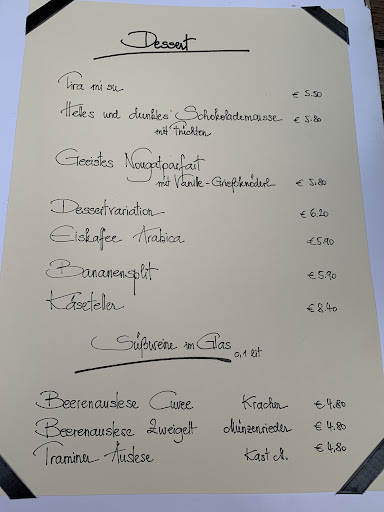 Dessert
Tira mi su € 5.50
Helles und dunkles Schokolademousse € 5.80
mit Früchten
Geeistes Nougatparfait
mit Vanille-Grießknöderl € 5.80
Dessertvariation € 6.20
Eiskaffee Arabica € 5.90
Bananensplit € 5.90
Käseteller € 8.40
Süßweine im Glas 0,1 lit
Beerenauslese Cuvee Kracher € 4.80
Beerenauslese Zweigelt Münzenrieder € 4.80
Traminer Auslese Kast A. € 4.80